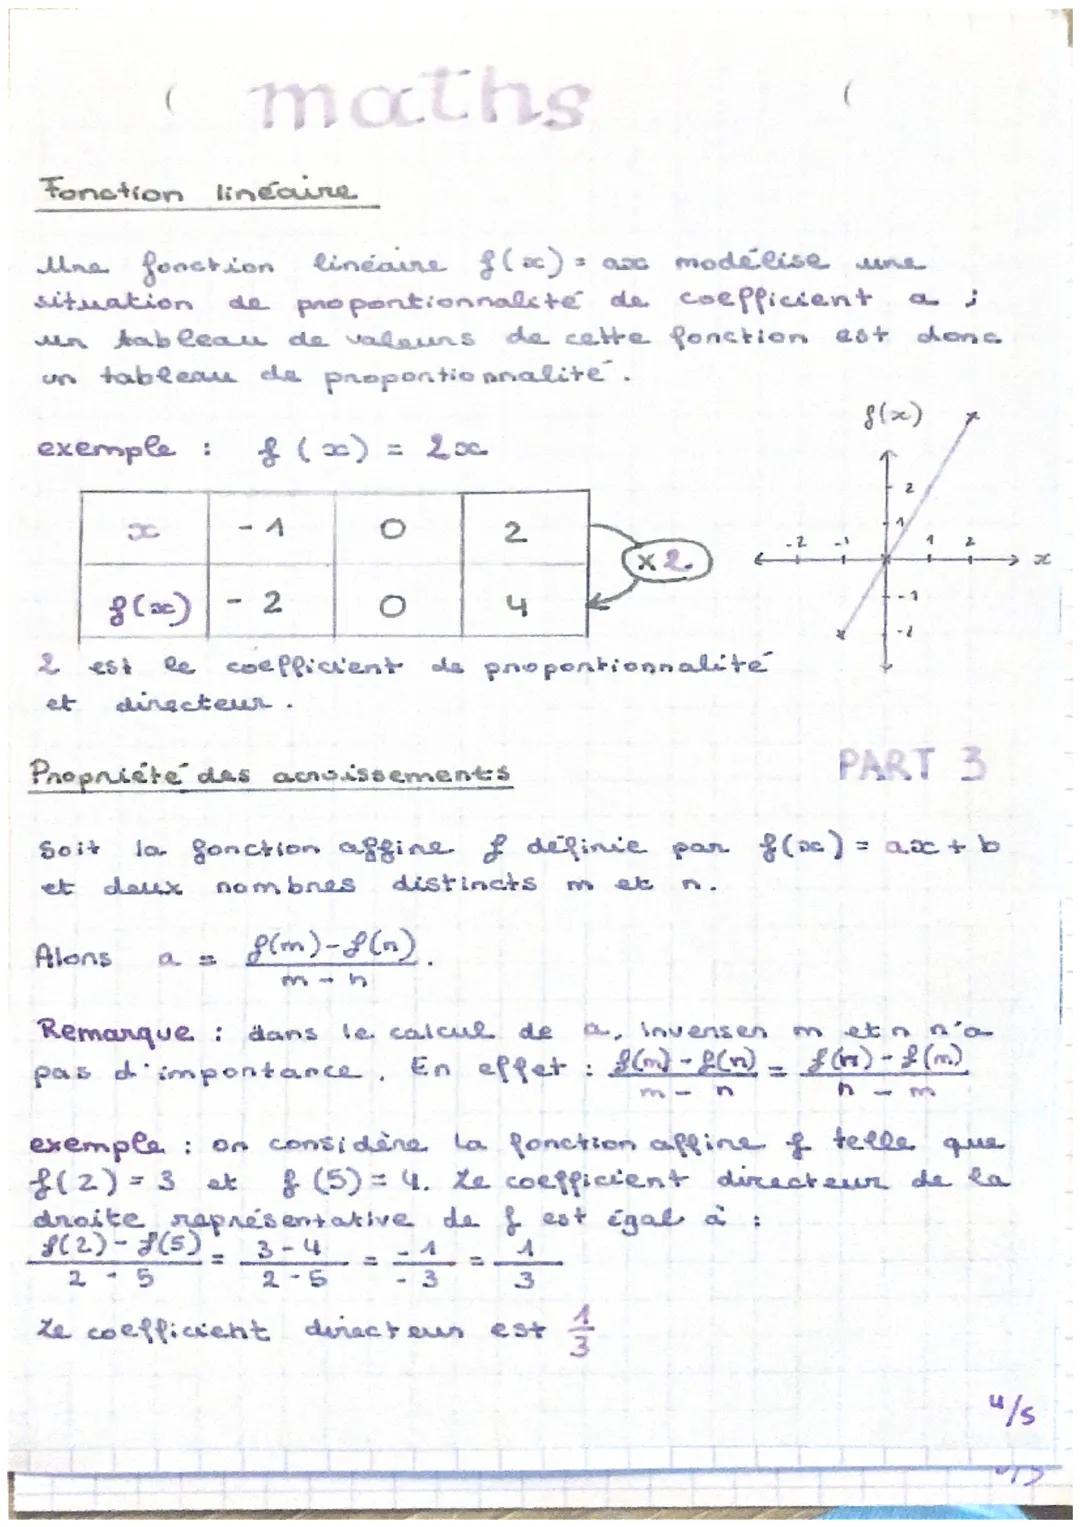 maths
Fonction linéaire
Une fonction linéaire f(x) = ax modélise une
situation de proportionnalité de coefficient a ;
un tableau de valeurs de cette fonction est donc
un tableau de proportionnalité.
exemple : f(x) = 2x
x -1 0 2
×2
f(x) -2 0 4
f(x)
2
1
-2 -1 1 2 x
-1
-2
2 est le coefficient de proportionnalité
et directeur.
Propriété des acroissements
PART 3
Soit la fonction affine f définie par f(x) = ax + b
et deux nombres distincts m et n.
Alors a = f(m)-f(n) / m-n .
Remarque : dans le calcul de a, inverser m et n n'a
pas d'importance. En effet : f(m)-f(n) / m-n = f(n)-f(m) / n-m
exemple : on considère la fonction affine f telle que
f(2) = 3 et f(5) = 4. Le coefficient directeur de la
droite représentative de f est égal à :
f(2)-f(5) / 2-5 = 3-4 / 2-5 = -1 / -3 = 1 / 3
Le coefficient directeur est 1/3
4/5